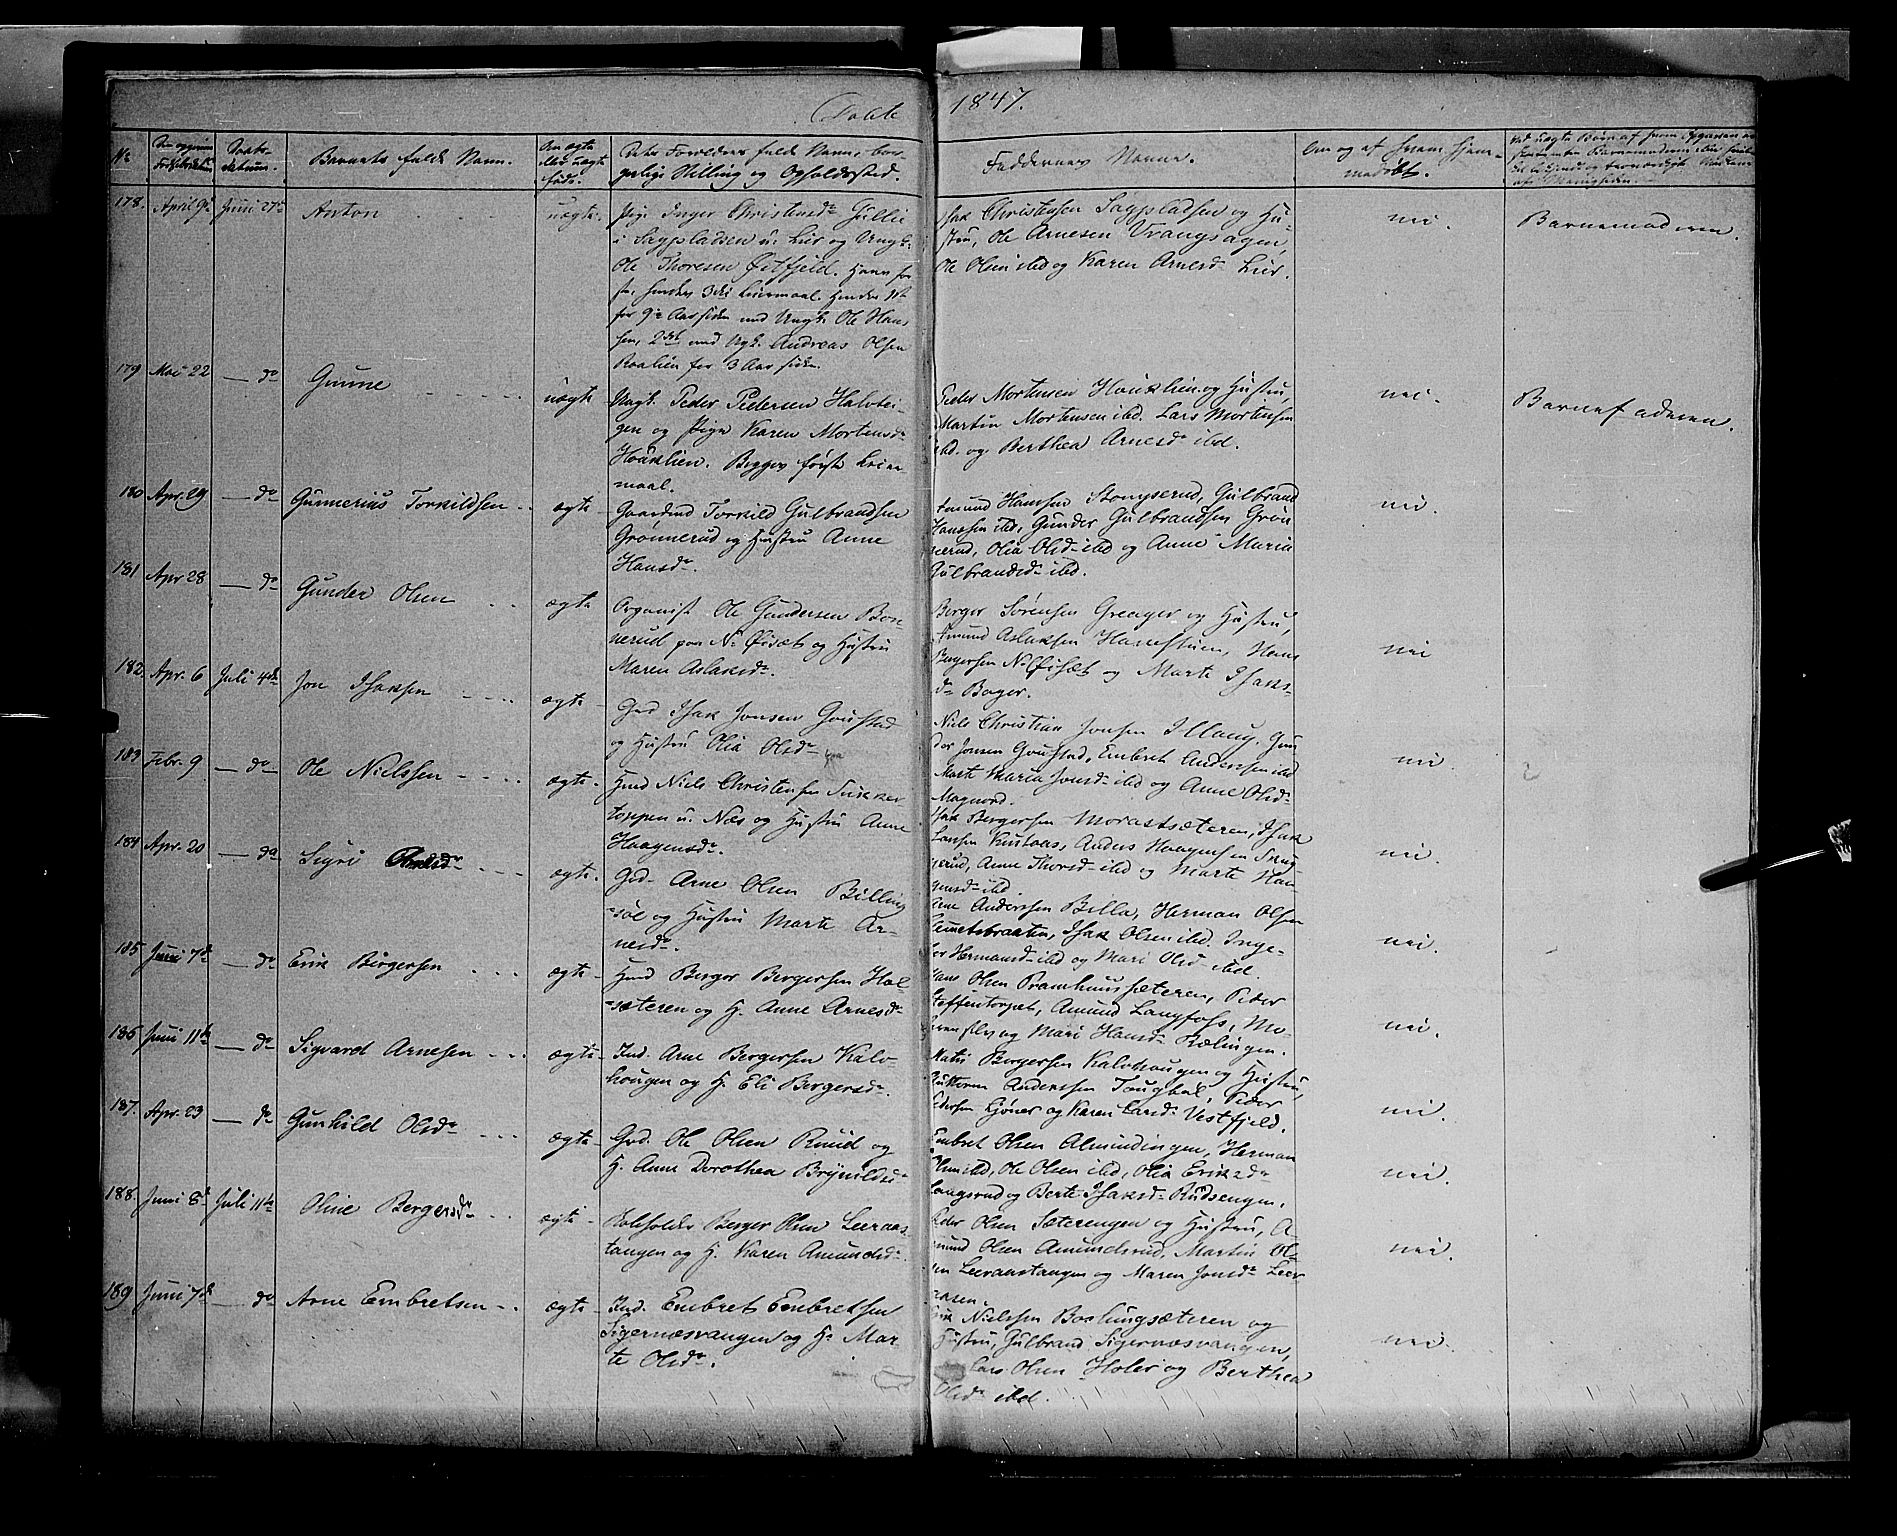 Døbte 1847.
No
Barnets fulde Navn.
Faddernes Navne.
178. April 9de Juni 27de Anton uægte Pige Inger Christensdr Gullie
i Sagpladsen u. Lier og Ungk.
Ole Thoresen Østfjeld. Hans før
ste, hendes 3die Leiermaal. Hendes 1st
for 9 Aar siden med Ungk. Ole Han
sen, 2det med Ugk. Andreas Olsen
Raalien for 3 Aar siden.
Isak Christensen Sagpladsen og Hu-
stru, Ole Arnesen Vrangsagen,
Ole Olsen ibd og Karen Arnesdr Lier.
nei.
Barnemoderen.
179 Mai 22 — do Gunne uægte Ungk. Peder Pedersen Halvtei-
gen og Pige Karen Mortensdr
Houklien. Begges første Leier
maal.
Peder Mortensen Houklien og Hustru,
Martin Mortensen ibd. Lars Mortensen
ibd. og Berthea Arnesdr ibd.
nei.
Barnefaderen.
180 Apr. 29 — do Gunnerius Torkildsen ægte Gaardmd Torkild Gulbrandsen
Grønnerud og Hustru Anne
Hansdr.
Amund Hansen Stomperud, Gulbrand
Hansen ibd, Gunder Gulbrandsen Grøn
nerud, Olia Olsd ibd og Anne Maria
Gulbrandsd ibd.
nei.
181 Apr 28 — do Gunder Olsen ægte Organist Ole Gundersen Bon-
nerud paa N. Øisæt og Hustru
Maren Aslaksdr.
Berger Sørensen Greager og Hustru,
Amund Aslaksen Hanestuen, Hans
Bergersen N. Øisæt og Marte Isaks-
dr Bager.
nei
182. Apr. 6 Juli 4de Jon Isaksen ægte Grd Isak Jonsen Goustad
og Hustru Olia Olsdr
Niels Christian Jonsen Illaug, Gun
der Jonsen Goustad, Embret Andersen ibd
Marte Maria Jonsd ibd og Anne Olsdr
Magnord.
nei.
183 Febr. 9 — do Ole Nielssen ægte Hmd Niels Christensen Sukker
toppen u. Næs og Hustru Anne
Haagensdr.
Isak Bergersen Morastsæteren, Isak
Larsen Kustaas, Anders Haagensen Skug-
gerud, Anne Thorsd ibd og Marte Haa
gensd ibd
nei.
184 Apr. 20 — do Sigri Arnesdr ægte. Grd Arne Olsen Billing
søl og Hustru Marte Ar-
nesdr.
Arne Andersen Billa, Herman Olsen
Semetsbraaten, Isak Olsen ibd. Inge-
bor Hermansd ibd og Mari Olsd ibd.
nei
185 Juni 7de — do Erik Bergersen ægte Hmd Berger Bergersen Hol-
sæteren og H. Anne Arnesdr
Hans Olsen Pramhuussæteren, Peder
Steffentorpet, Amund Langfoss, Mo-
ren selv og Mari Hansdr Rælingen.
nei.
186 Juni 11te — do Sigvard Arnesen ægte Ind. Arne Bergersen Kalv-
hougen og H. Eli Bergersdr
Mathi Bergersen Kalvhougen og Hustru,
Guttorm Andersen Tougbøl, Peder
Pedersen Kjøner og Karen Larsdr Vestfjeld.
nei.
187. Apr. 23 — do Gunhild Olsdr ægte Grd. Ole Olsen Ruud og
H. Anne Dorothea Brynildsd
Embret Olsen Almindingen, Herman
Olsen ibd, Ole Olsen ibd, Olia Eriksdr
Langsrud og Berte Isaksdr Rudsengen.
nei.
188. Juni 8de Juli 11te Oline Bergersdr ægte Boleholder Berger Olsen Leeraas
tangen og H. Karen Amundsdr
Peder Olsen Sæterengen og Hustru, A-
mund Olsen Amundsrud, Martin Ol-
sen Leeraastangen og Maren Jonsdr Leer
aasen.
nei.
189 Juni 7de — do Arne Embretsen ægte Ind. Embret Embretsen
Sigernæsvangen og H. Mar-
te Olsdr.
Erik Nielsen Boslungsæteren og
Hustru, Gulbrand Sigernæsvangen,
Lars Olsen Holer og Berthea
Olsdr ibd.
nei.